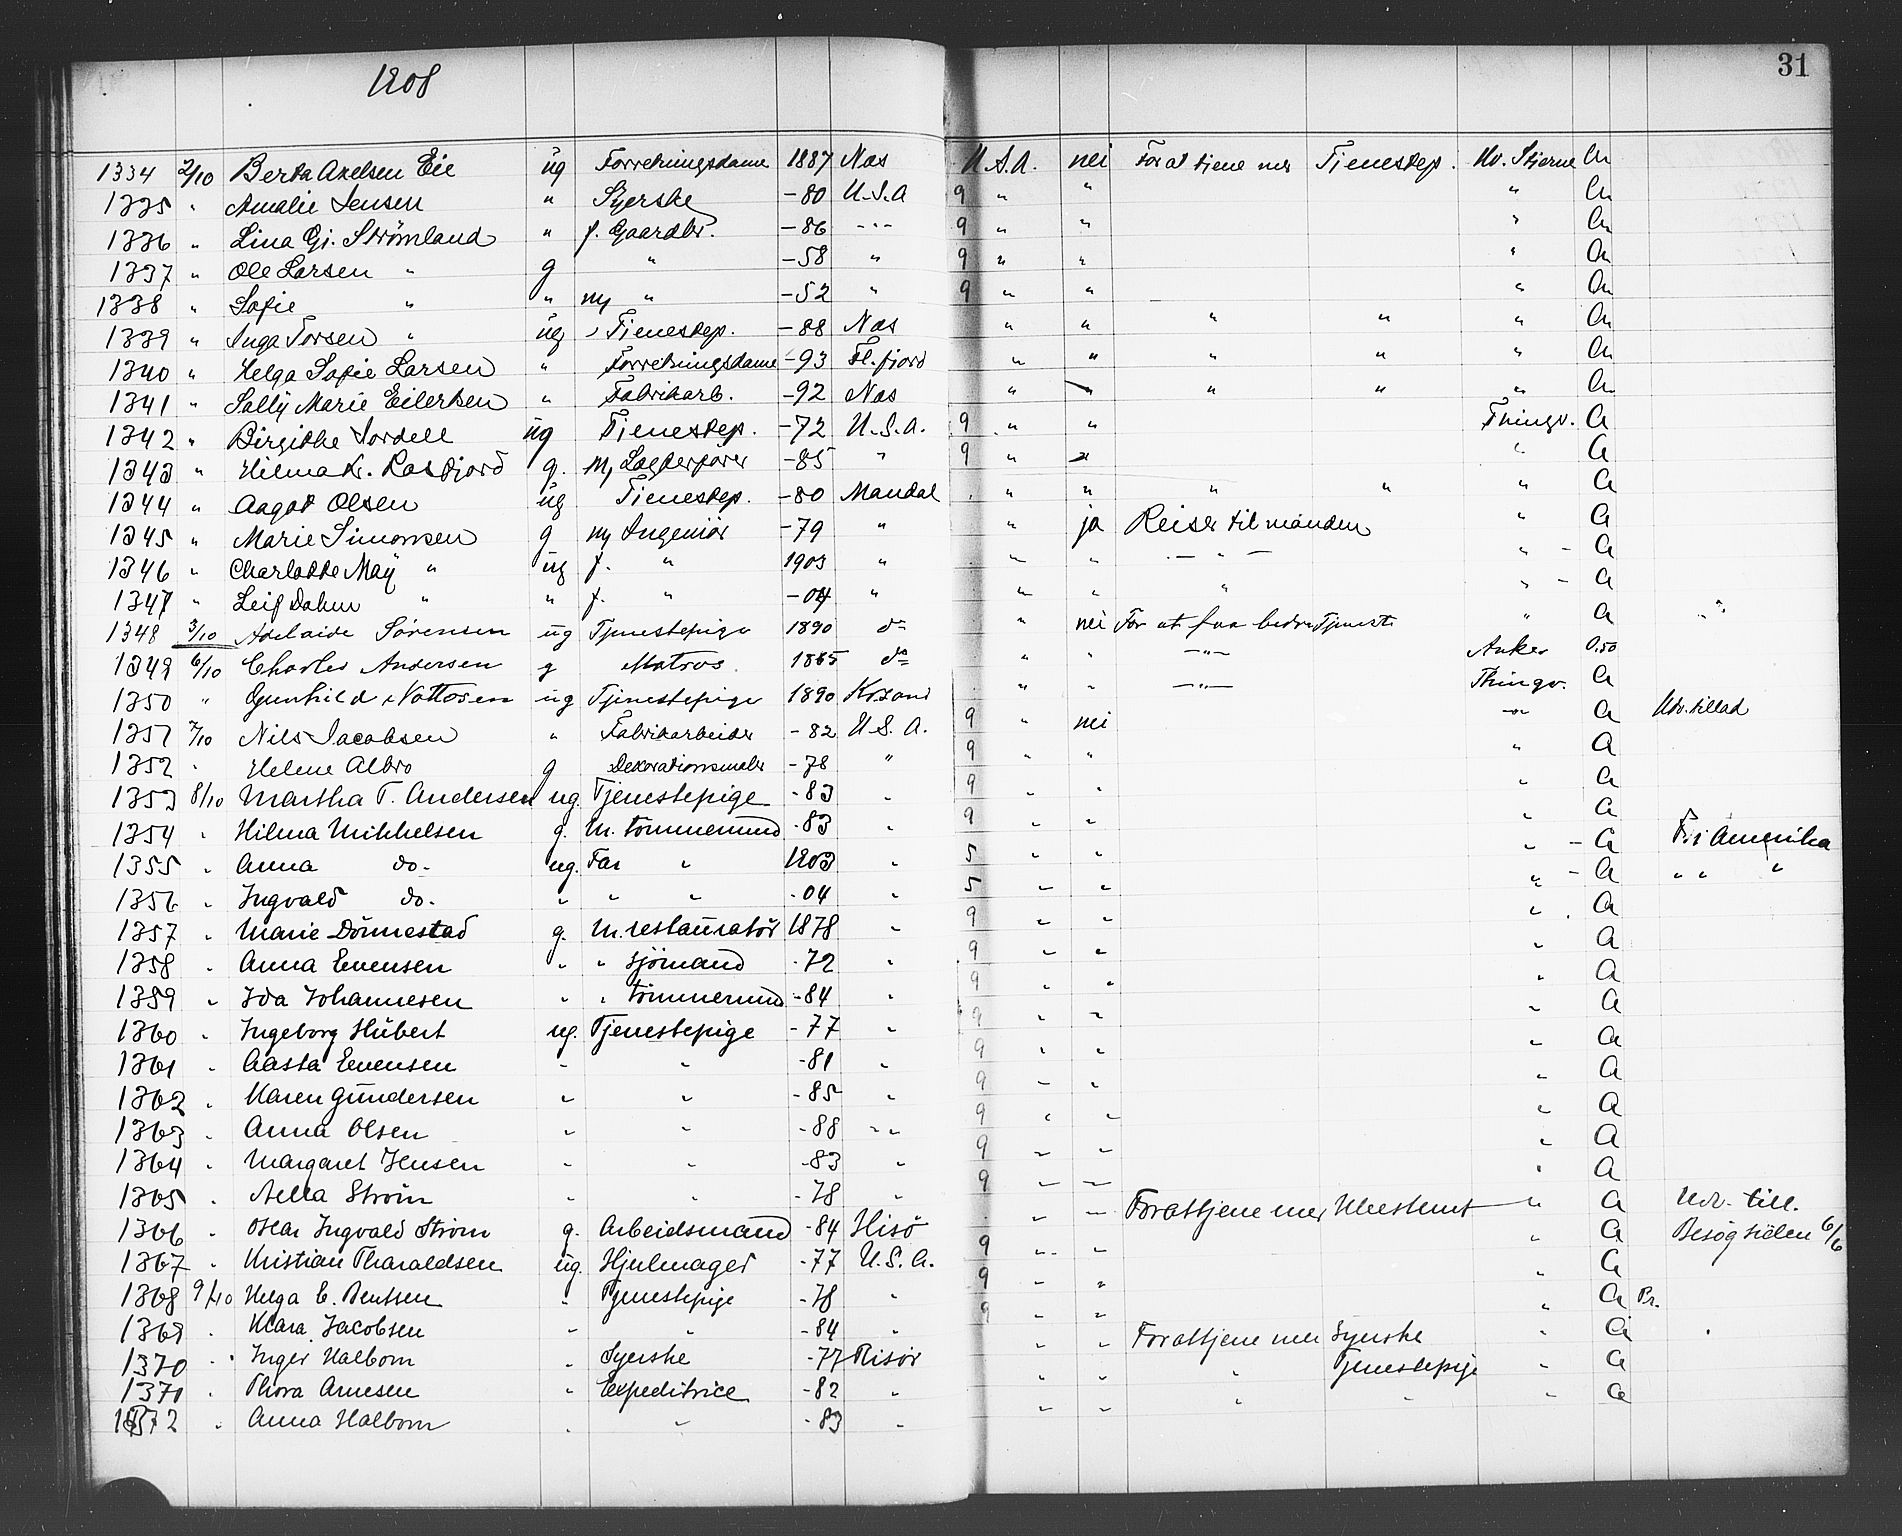 1908
31
1334 2/10 Berta Axelsen Eie ug Forretningsdame 1887 Nes U.S.A. nei For at tjene mer Tienestep. Hv. Stjerne Cu
1335 " Amalie Jensen " Syerske -80 U.S.A 9 " " " Cu
1336 " Lina Gj. Strømland " f. Gaardbr. -86 -"- 9 " " " Cu
1337 " Ole Larsen " g " -58 " 9 " " " Cu
1338 " Sofie " " m, " -52 " 9 " " " Cu
1339 " Inga Torsen " ug Tienestep. -88 Nes " " " " " Cu
1340 " Helga Sofie Larsen " Forretningsdame -93 Fl.fjord " " " " " Cu
1341 " Sally Marie Eilertsen " Fabrikarb. -92 Nes " " " " " Cu
1342 " Birgithe Sordell ug Tienestep. -72 U.S.A. 9 " " Thingv. A
1343 " Hilma Kr. Rosfjord g. m, -85 " 9 " " " A
1344 " Aagot Olsen ug Tienestep. -80 Mandal " " " " " A
1345 " Marie Simonsen g m, Ingeniør -79 " " ja Reiser til manden " A
1346 " Charlotte May " ug f. " 1903 " " " - " - " - A
1347 " Leif Dahm " " f. " -04 " " " " " - A
1348 3/10 Adelaide Sørensen ug Tjenestepige 1890 do " nei For at faa bedre Tjenest " A "
1349 6/10 Charles Andersen g Matros 1865 do " " -"- Anker 0.50
1350 " Gunhild Nottosen ug Tjenestepige 1890 Krsand " " -"- Thingv. A
1351 7/10 Nils Jacobsen " Fabrikarbeider -82 U.S.A. 9 " nei -"- A Udv. tillad
1352 " Helene Albro g Dekorationsmaler -78 " 9 " " " A
1353 8/10 Martha T. Andersen ug. Tjenestepige -83 " 9 " " " A
1354 " Hilma Mikkelsen g. M. tømmermand -83 " 9 " " " A
1355 " Anna do. ug. Far " 1903 " 5 " " " - A Fri Amerika
1356 " Ingvald do. " " " -04 " 5 " " " - A " " "
1357 " Marie Dønnestad g. M. restauratør 1878 " 9 " " " . A
1358 " Anna Evensen " " sjømand -72 " 9 " " " A
1359 " Ida Johannesen " " tømmermd -84 " 9 " " " A
1360 " Ingeborg Hübert ug. Tjenestepige -77 " 9 " " " A
1361 " Aasta Evensen " " -81 " 9 " " " A
1362 " Karen Gundersen " " -85 " 9 " " " A
1363 " Anna Olsen " " -88 " " 9 " " " A
1364 " Margaret Jensen " " -83 " 9 " " " A
1365 " Nella Strøm " " -78 " 9 " " " A
1366 " Oskar Ingvald Strøm g. Arbeidsmand -84 Hisö " " For at tjene mer Ubestemt " A Udv. till.
1367 " Kristian Tharaldsen ug. Hjulmager -77 U.S.A. 9 " " " A Besøg siden 6/6
1368 9/10 Helga C. Bentsen " Tjenestepige -78 " 9 " " " A
1369 " Klara Jacobsen " " -84 " 9 " " " A Br.
1370 " Inger Halborn " Syerske -77 Risør " " For at tjene mer Syerske " A
1371 " Thora Arnesen " Expeditrice -82 " " " " Tjenestepige " A
1372 " Anna Halborn " " -83 " " " " " " A